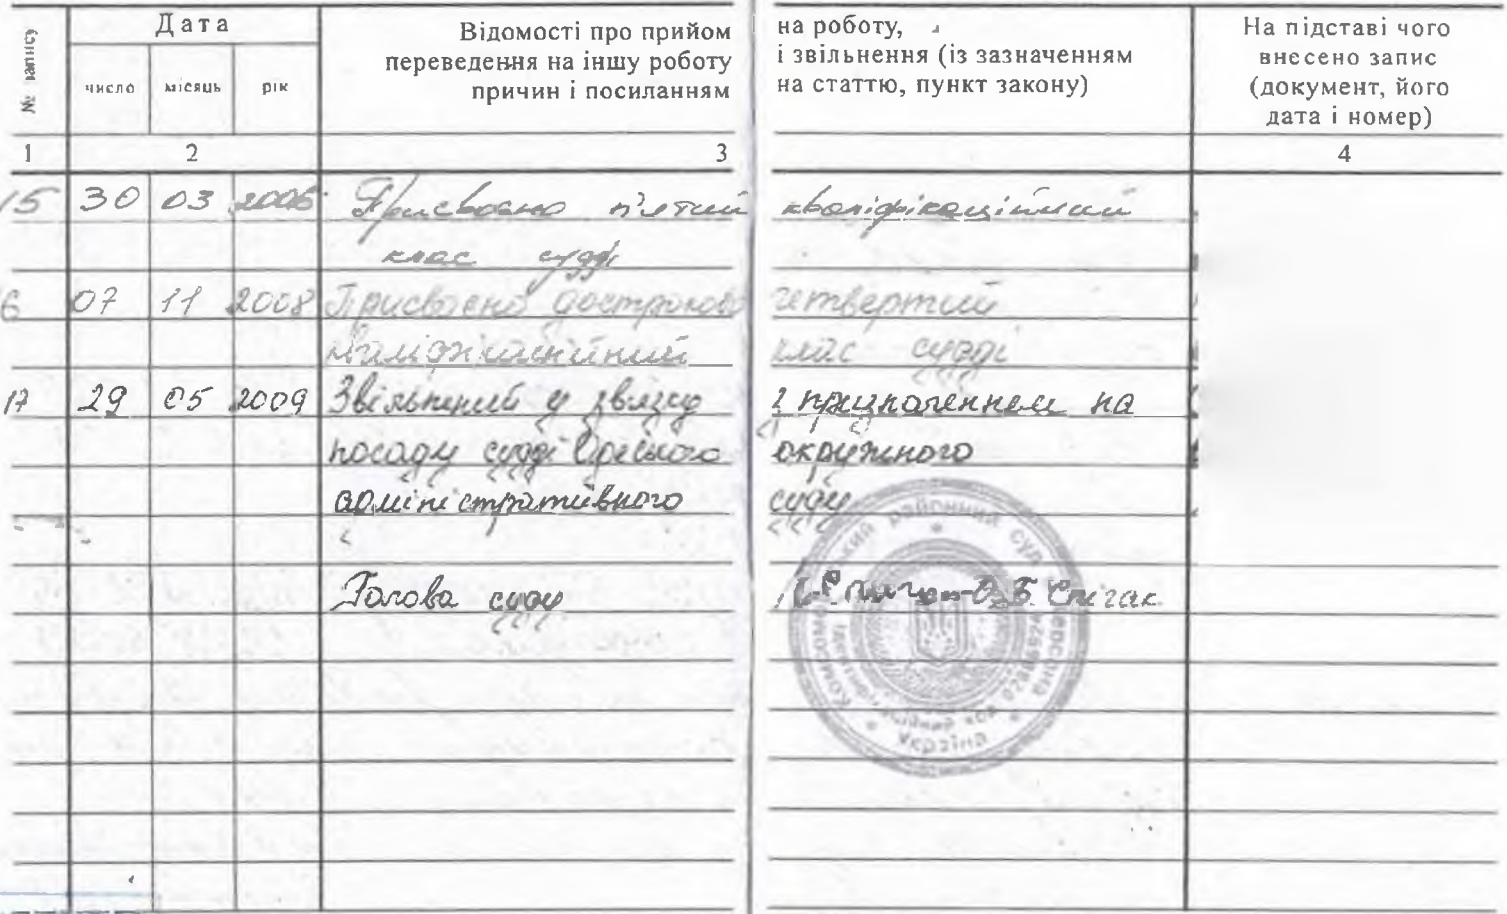 № запису
Дата
число місяць рік
Відомості про прийом на роботу,
переведення на іншу роботу і звільнення (із зазначенням
причин і посиланням на статтю, пункт закону)
На підставі чого
внесено запис
(документ, його
дата і номер)
1 2 3 4
15 30 03 2006 Присвоєно п'ятий кваліфікаційний
клас судді
16 07 11 2008 Присвоєно достроково четвертий
кваліфікаційний клас судді
17 29 05 2009 Звільнений у звязку з призначенням на
посаду судді окружного
адміністративного суду
Голова суду О.Б. Спігак
районний суд
Ідентифікаційний код
Україна